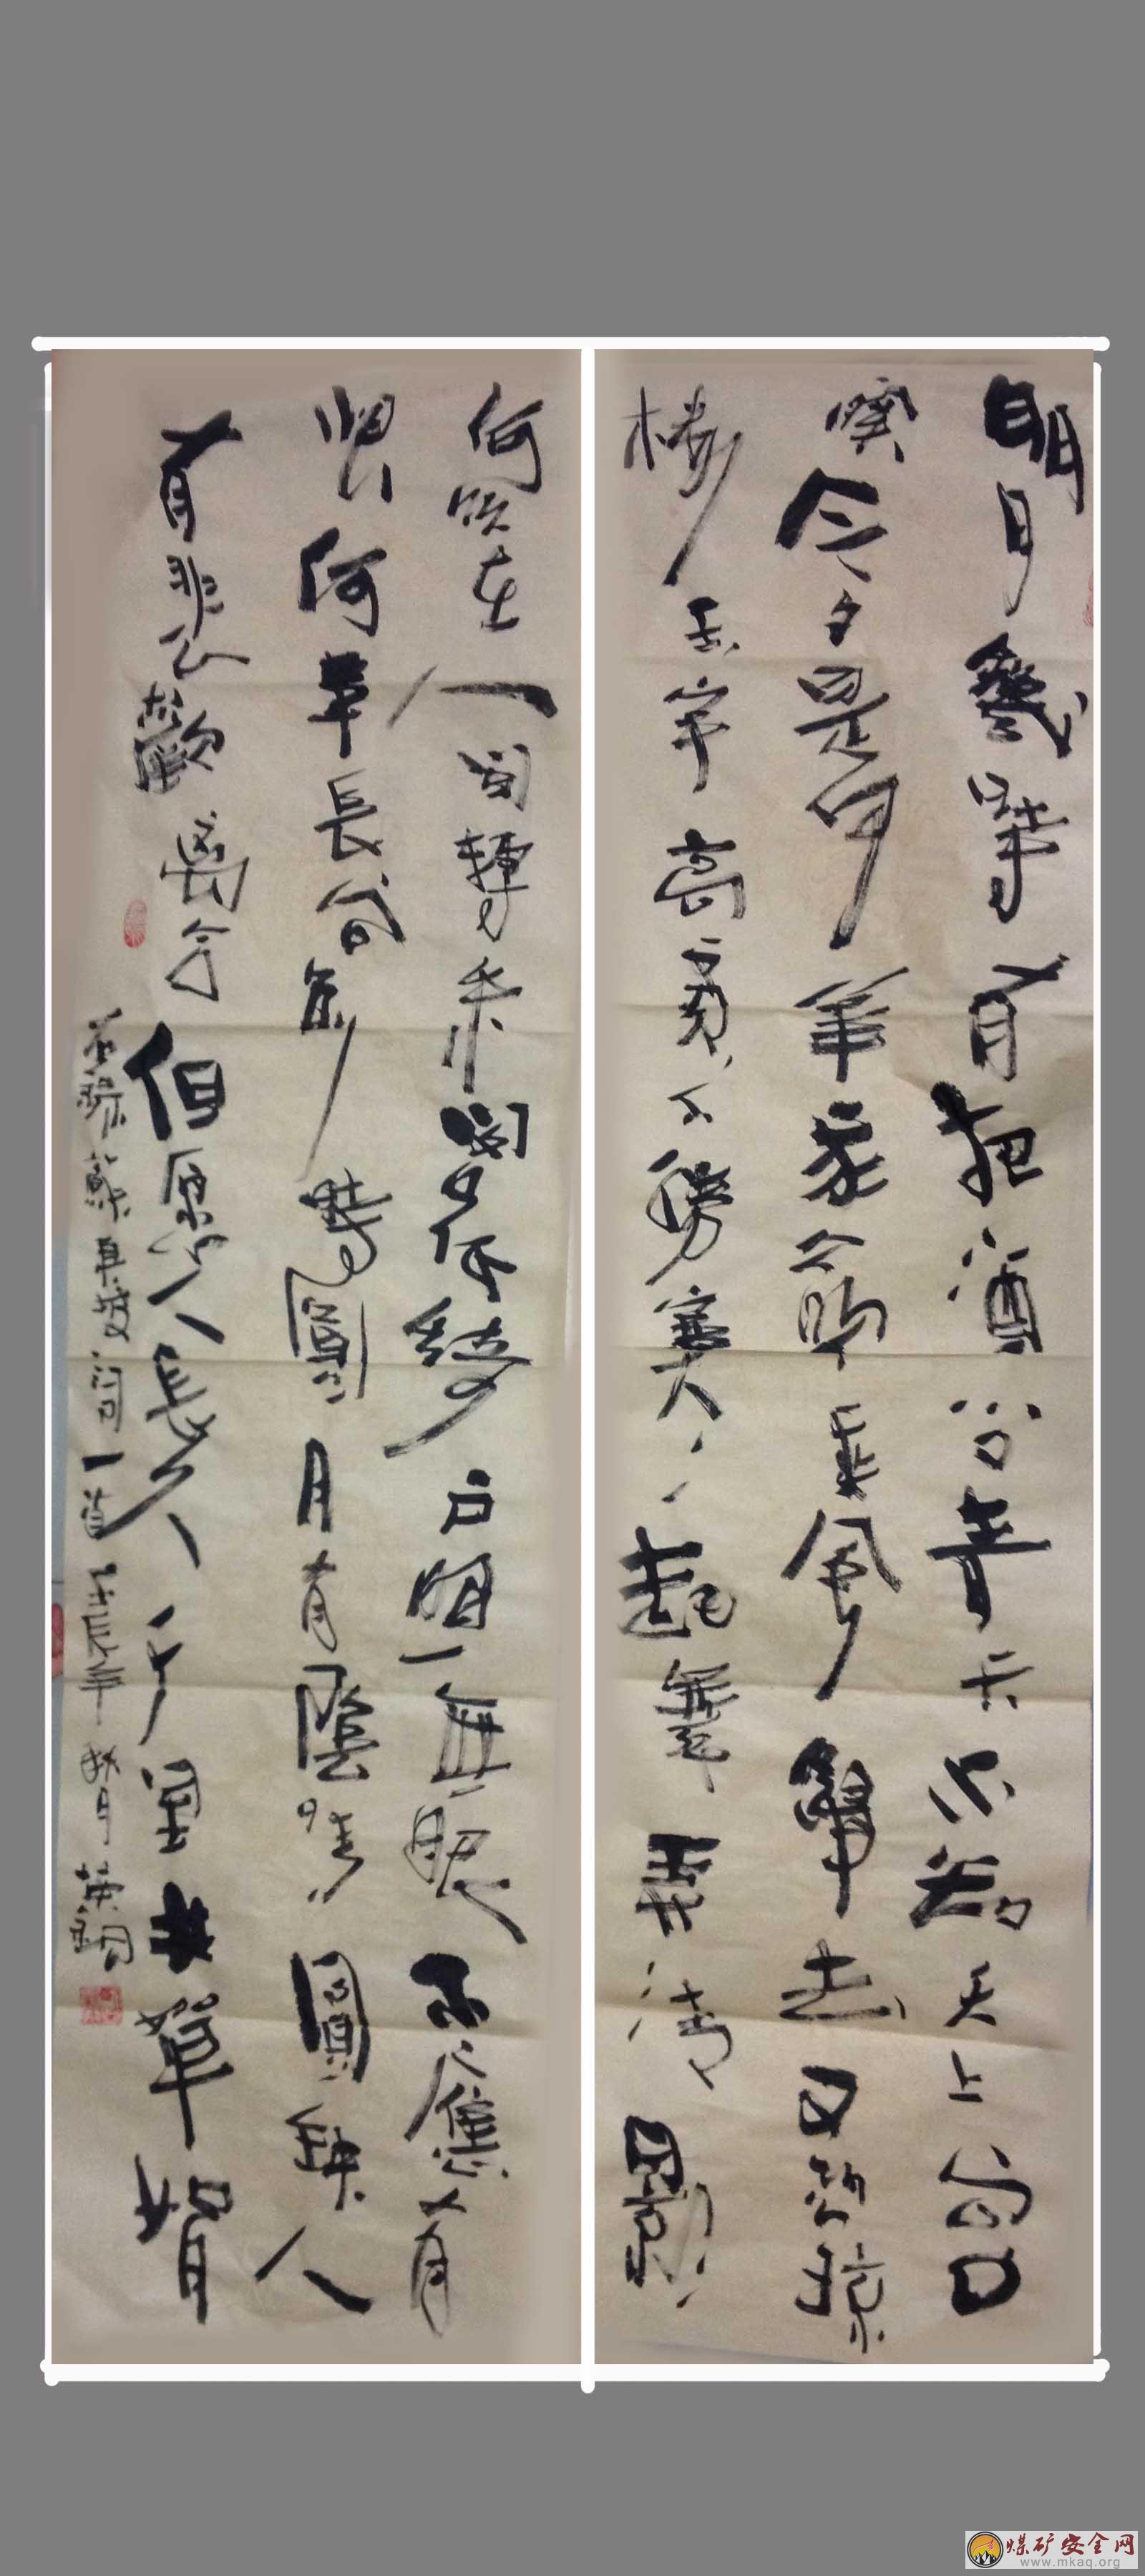 明月幾時有把酒问青天不知天上宫
闕今夕是何年我欲乘風歸去又恐琼
樓玉宇高處不勝寒起舞弄清影
何似在人間轉朱閣低綺户照無眠不應有
恨何事長向别時圓月有陰晴圓缺人
有悲歡離合但愿人長久千里共嬋娟
蘇東坡词一首壬辰年秋月英
煤矿安全网
www.mkaq.org